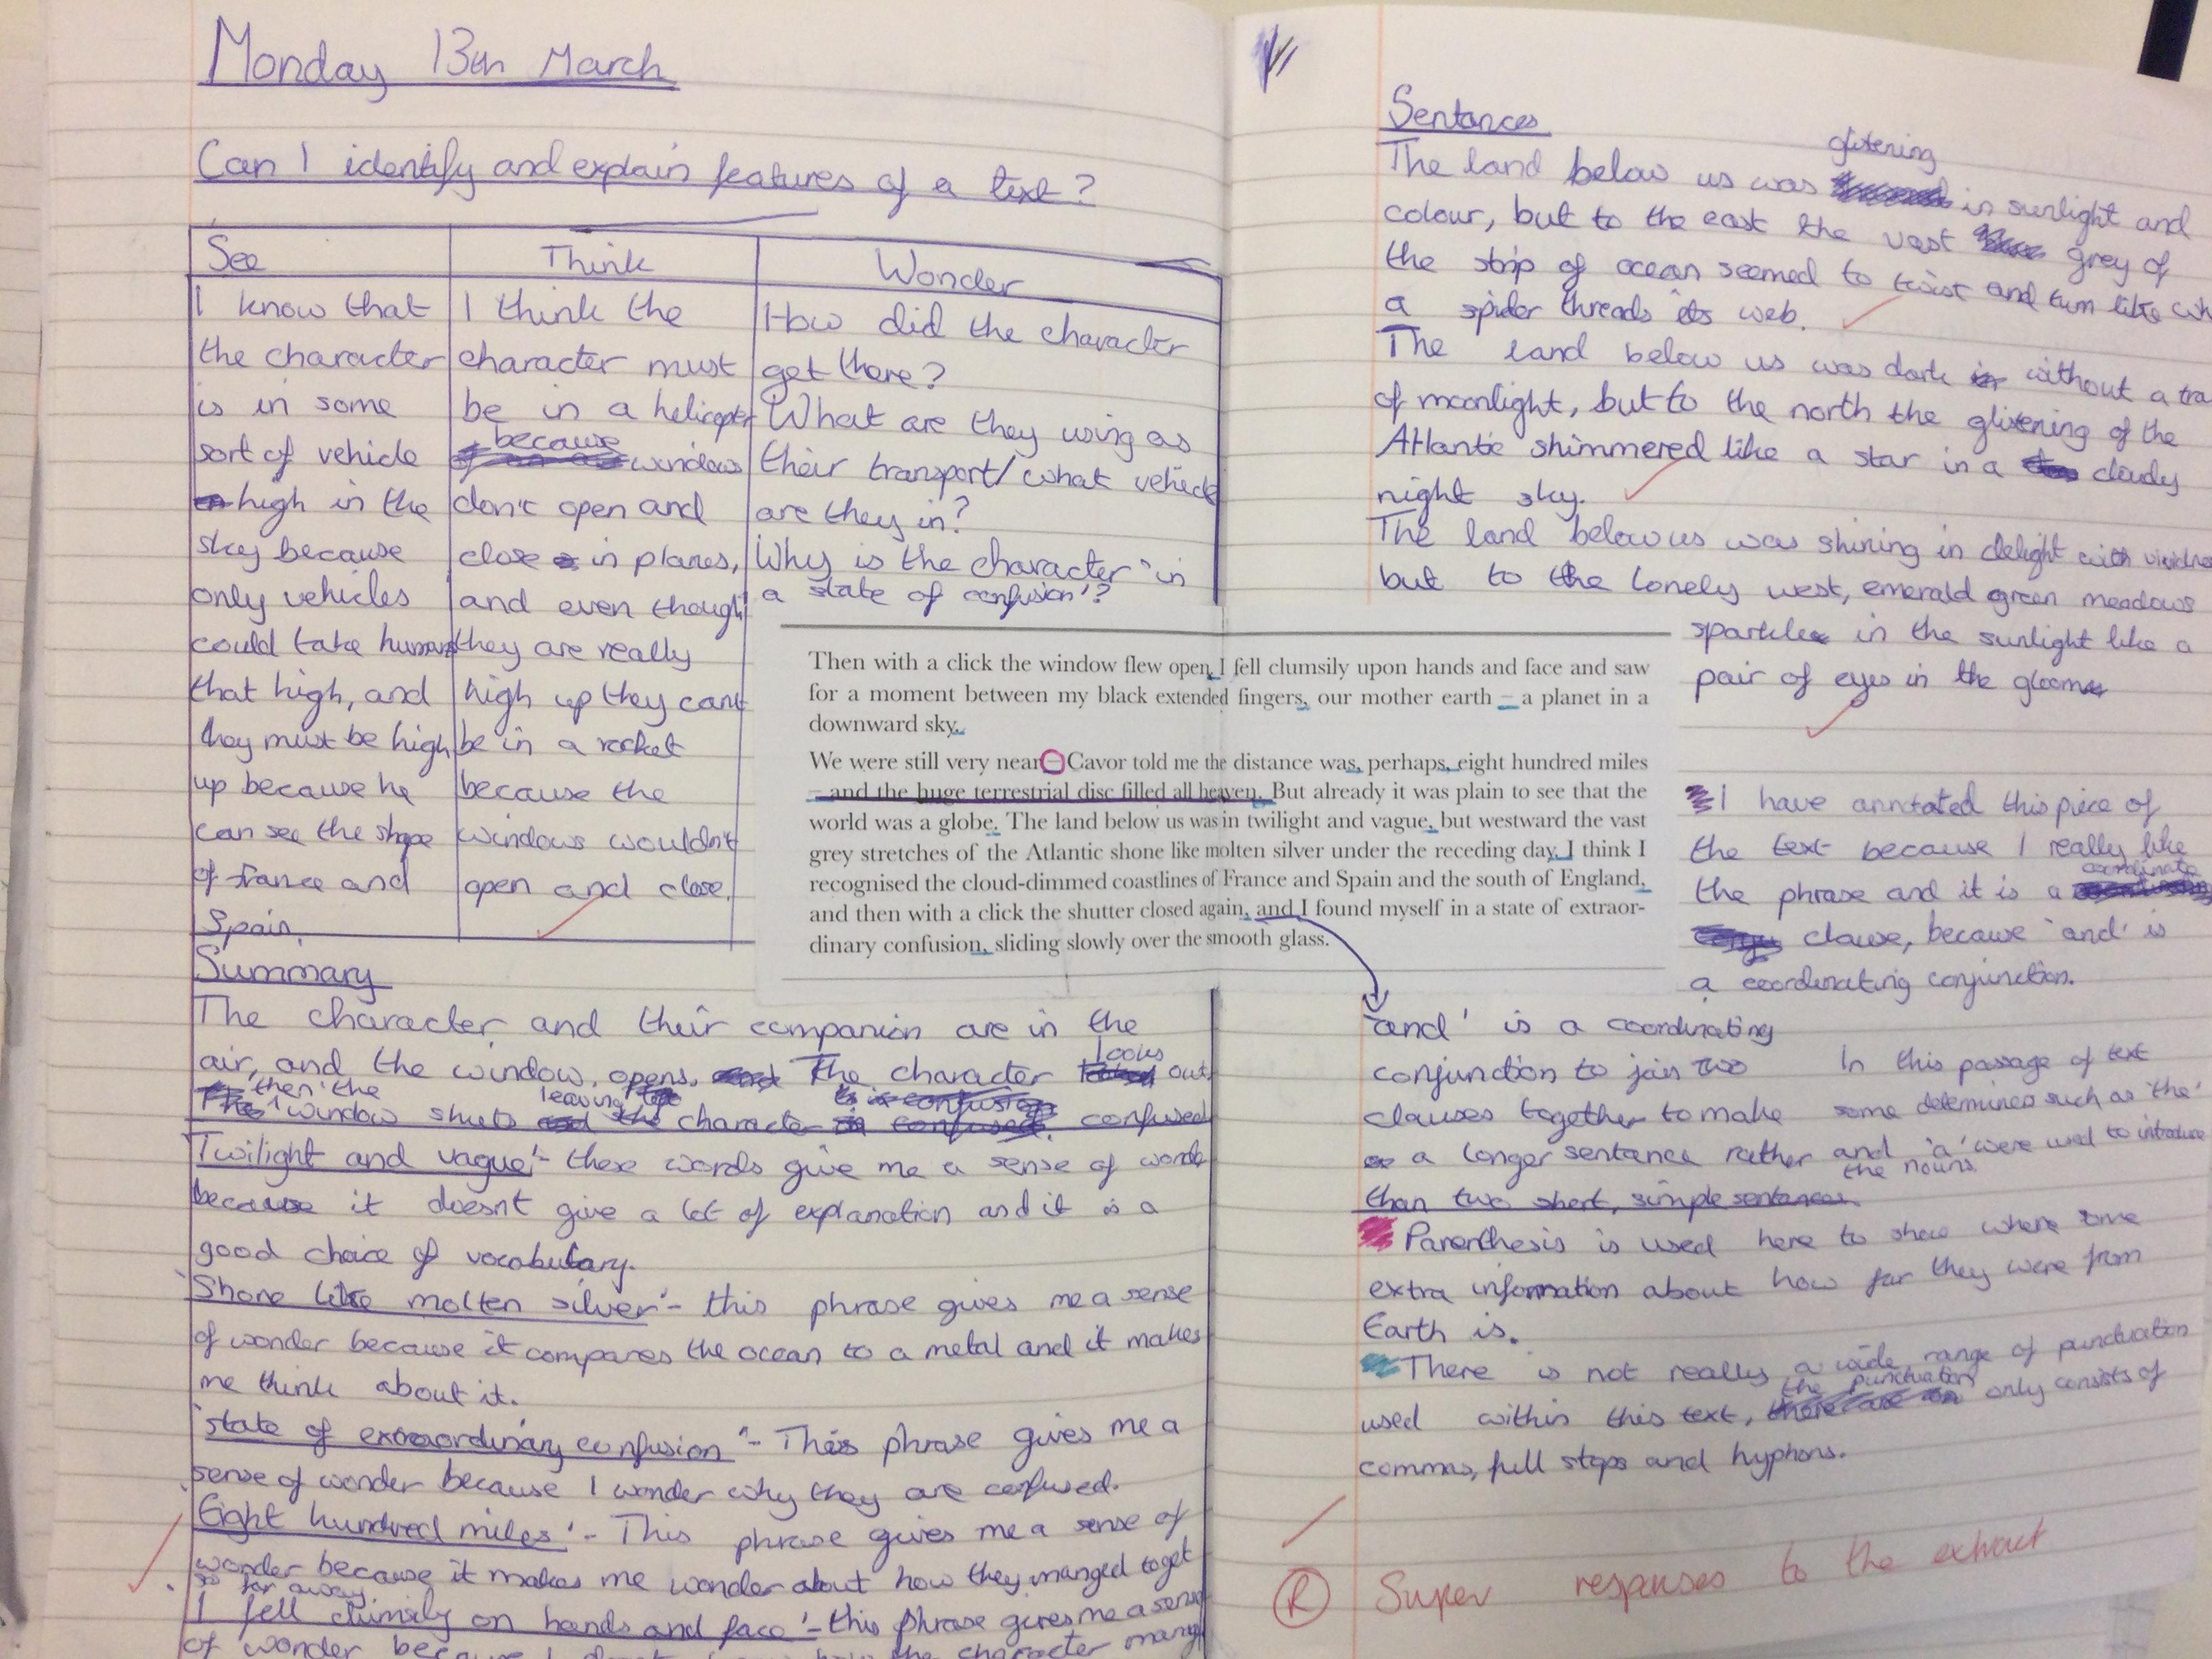 Monday 13th March
Can I identify and explain features of a text?
See
I know that
the character
is in some
sort of vehicle
high in the
sky because
only vehicles
could take humans
that high, and
they must be high
up because he
can see the shape
of france and
Spain.
Think
I think the
character must
be in a helicopter
because
windows
don't open and
close in planes,
and even though
they are really
high up they cant
be in a rocket
because the
windows wouldn't
open and close.
Wonder
How did the character
get there?
What are they using as
their transport/what vehicle
are they in?
Why is the character 'in
a state of confusion'?
Summary
The character and their companion are in the
air, and the window opens. The character looks out.
'then' the
window shuts leaving the character confused
Twilight and vague'- these words give me a sense of wonder
because it doesn't give a lot of explanation and it is a
good choice of vocabulary.
'Shone like molten silver'- this phrase gives me a sense
of wonder because it compares the ocean to a metal and it makes
me think about it.
'state of extraordinary confusion'- This phrase gives me a
sense of wonder because I wonder why they are confused.
'Eight hundred miles'- This phrase gives me a sense of
wonder because it makes me wonder about how they manged to get
so far away
'I fell clumsily on hands and face'- this phrase gives me a sense
of wonder because I how the character
Then with a click the window flew open, I fell clumsily upon hands and face and saw
for a moment between my black extended fingers, our mother earth – a planet in a
downward sky.
We were still very near – Cavor told me the distance was, perhaps, eight hundred miles
– and the huge terrestrial disc filled all heaven. But already it was plain to see that the
world was a globe. The land below us was in twilight and vague, but westward the vast
grey stretches of the Atlantic shone like molten silver under the receding day. I think I
recognised the cloud-dimmed coastlines of France and Spain and the south of England,
and then with a click the shutter closed again, and I found myself in a state of extraor-
dinary confusion, sliding slowly over the smooth glass.
Sentances
The land below us was glitening in sunlight and
colour, but to the east the vast grey of
the strip of ocean seemed to twist and turn like
a spider threads its web.
The land below us was dark without a
of moonlight, but to the north the glitening of the
Atlantic shimmered like a star in a cloudy
night sky.
The land below us was shining in delight with
but to the lonely west, emerald green meadows
sparkle in the sunlight like a
pair of eyes in the gloom
I have anntated this piece of
the text because I really like
the phrase and it is a coordinate
clause, because 'and' is
a coordinating conjunction.
'and' is a coordinating
conjunction to join two
clauses together to make
a longer sentence rather
than two short, simple sentences.
In this passage of text
some determines such as 'the'
and 'a' were used to introduce
the nouns
Parenthesis is used here to show where some
extra information about how far they were from
Earth is.
There is not really a wide range of punctuation
used within this text, the punctuation only consists of
commas, full stops and hyphons.
R Super responses to the extract